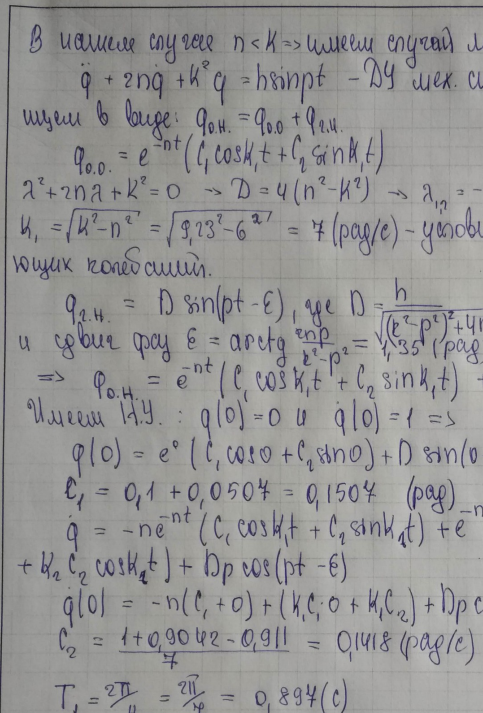 В нашем случае n < K => имеем случай м
q̈ + 2nq̇ + K²q = hsinpt - ДУ мех. си
ищем в виде: qо.н. = qо.о + qч.н.
qо.о. = e^-nt (C₁cosK₁t + C₂sinK₁t)
λ² + 2nλ + K² = 0 → D = 4(n² - K²) → λ₁,₂ = -
K₁ = √K² - n² = √9,23² - 6² = 7 (рад/с) - услови
ющих колебаний.
qч.н. = D sin(pt - ε), где D = h/√(k² - p²)² + 4n
и сдвиг фаз ε = arctg 2np/k² - p² = 1,35 (рад
=> qо.н. = e^-nt (C₁cosK₁t + C₂sinK₁t) +
Имеем Н.У.: q(0) = 0 и q̇(0) = 1 =>
q(0) = e⁰ (C₁cos0 + C₂sin0) + D sin(0
C₁ = 0,1 + 0,0507 = 0,1507 (рад)
q̇ = -ne^-nt (C₁cosK₁t + C₂sinK₁t) + e^-n
+ K₂C₂cosK₁t) + Dp cos(pt - ε)
q̇(0) = -n(C₁ + 0) + (K₁C₁·0 + K₁C₂) + Dp c
C₂ = 1 + 0,9042 - 0,911/7 = 0,1418 (рад/с)
T₁ = 2π/ = 2π/7 = 0,897 (с)